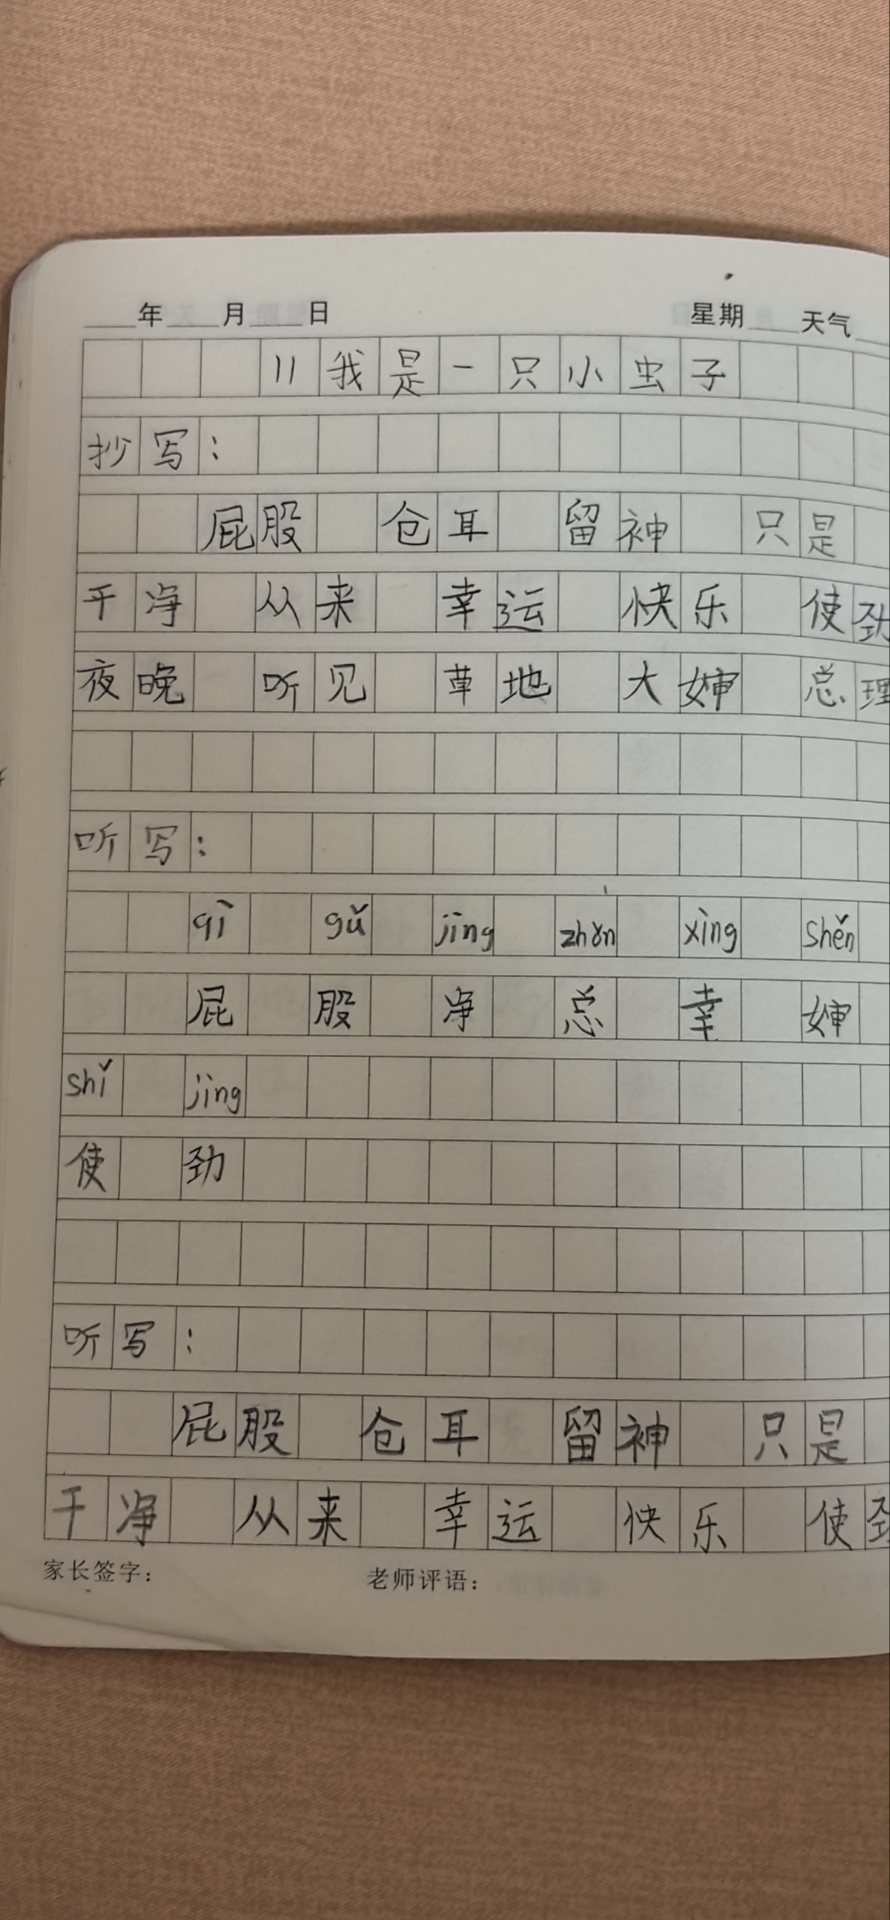 年 月 日 星期 天气
11 我是一只小虫子
抄写：
屁股 仓耳 留神 只是
干净 从来 幸运 快乐 使劲
夜晚 听见 草地 大婶 总理
听写：
qì gǔ jìng zhǒn xìng shěn
屁 股 净 总 幸 婶
shǐ jìng
使 劲
听写：
屁股 仓耳 留神 只是
干净 从来 幸运 快乐 使劲
家长签字： 老师评语：